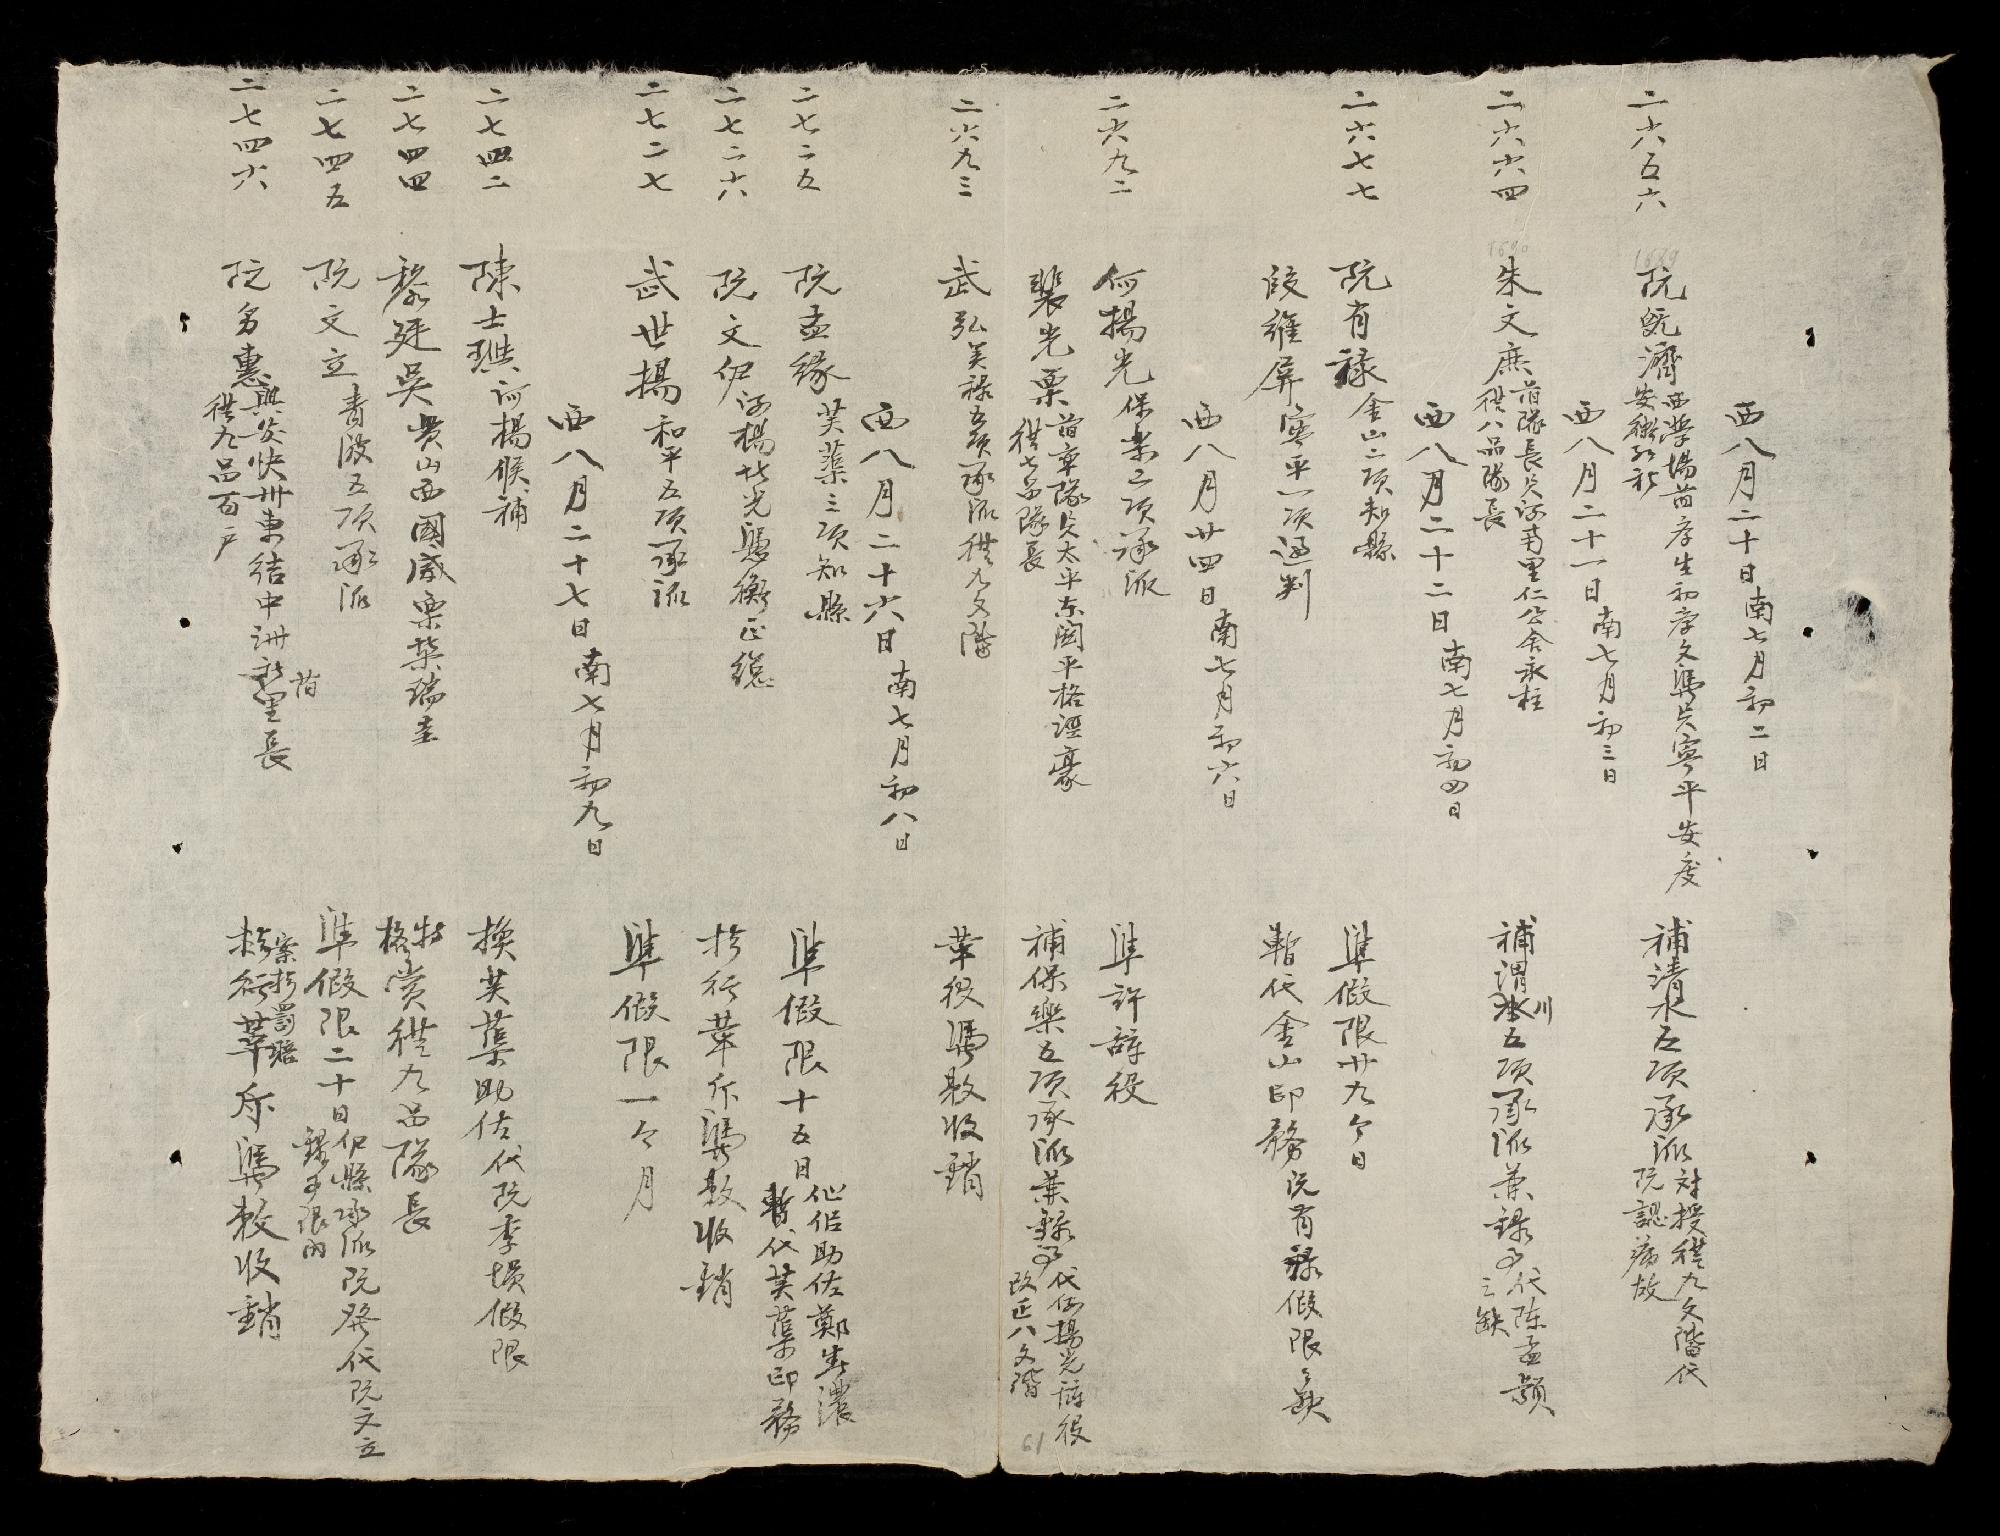 西八月二十日南七月初二日
二六五六
1689
阮乾濟
西學場前學生初學文憑貫寧平安慶
補清水五項承派
対授從九文階代
阮認病故
西八月二十一日南七月初三日
二六六四
1690
朱文庶
前隊長貫河南里仁公舍永柱
從八品隊長
補渭川五項承派兼錄事
代陳孟顥
之缺
西八月二十二日南七月初四日
二六七七
阮有祿
金山二項知縣
準假限廿九個日
段維屏
寧平一項通判
暫代金山印務
阮有祿假限缺
西八月廿四日南七月初六日
二六九二
何揚光
保樂五項承派
準許辭役
裴光粟
前章隊貫太平東関平格
從七品隊長
補保樂五項承派兼錄事
代何揚光辭役
改正八文階
61
二六九三
武弘美
祿五項承派從九文階
革役憑敕收銷
西八月二十六日南七月初八日
二七二五
阮孟緣
芙蕖三項知縣
準假限十五日
他侶助佐鄭生濃
暫代芙蕖印務
二七二六
阮文伊
河楊北光憑衡正總
於行革斥憑敕收銷
二七二七
武世揚
和平五項承派
準假限一個月
西八月二十七日南七月初九日
二七四二
陳士
河楊候補
換芙蕖助佐代阮季損假限
二七四四
黎廷吳
貴山西國威樂業瑞圭
特格賞從九品隊長
二七四五
阮文立
青波五項承派
準假限二十日
伊縣承派阮癸代阮文立
錄事限內
二七四六
阮名惠
興安快州東結中洲前里長
從九品百戶
案於罰賠
於行革斥憑敕收銷